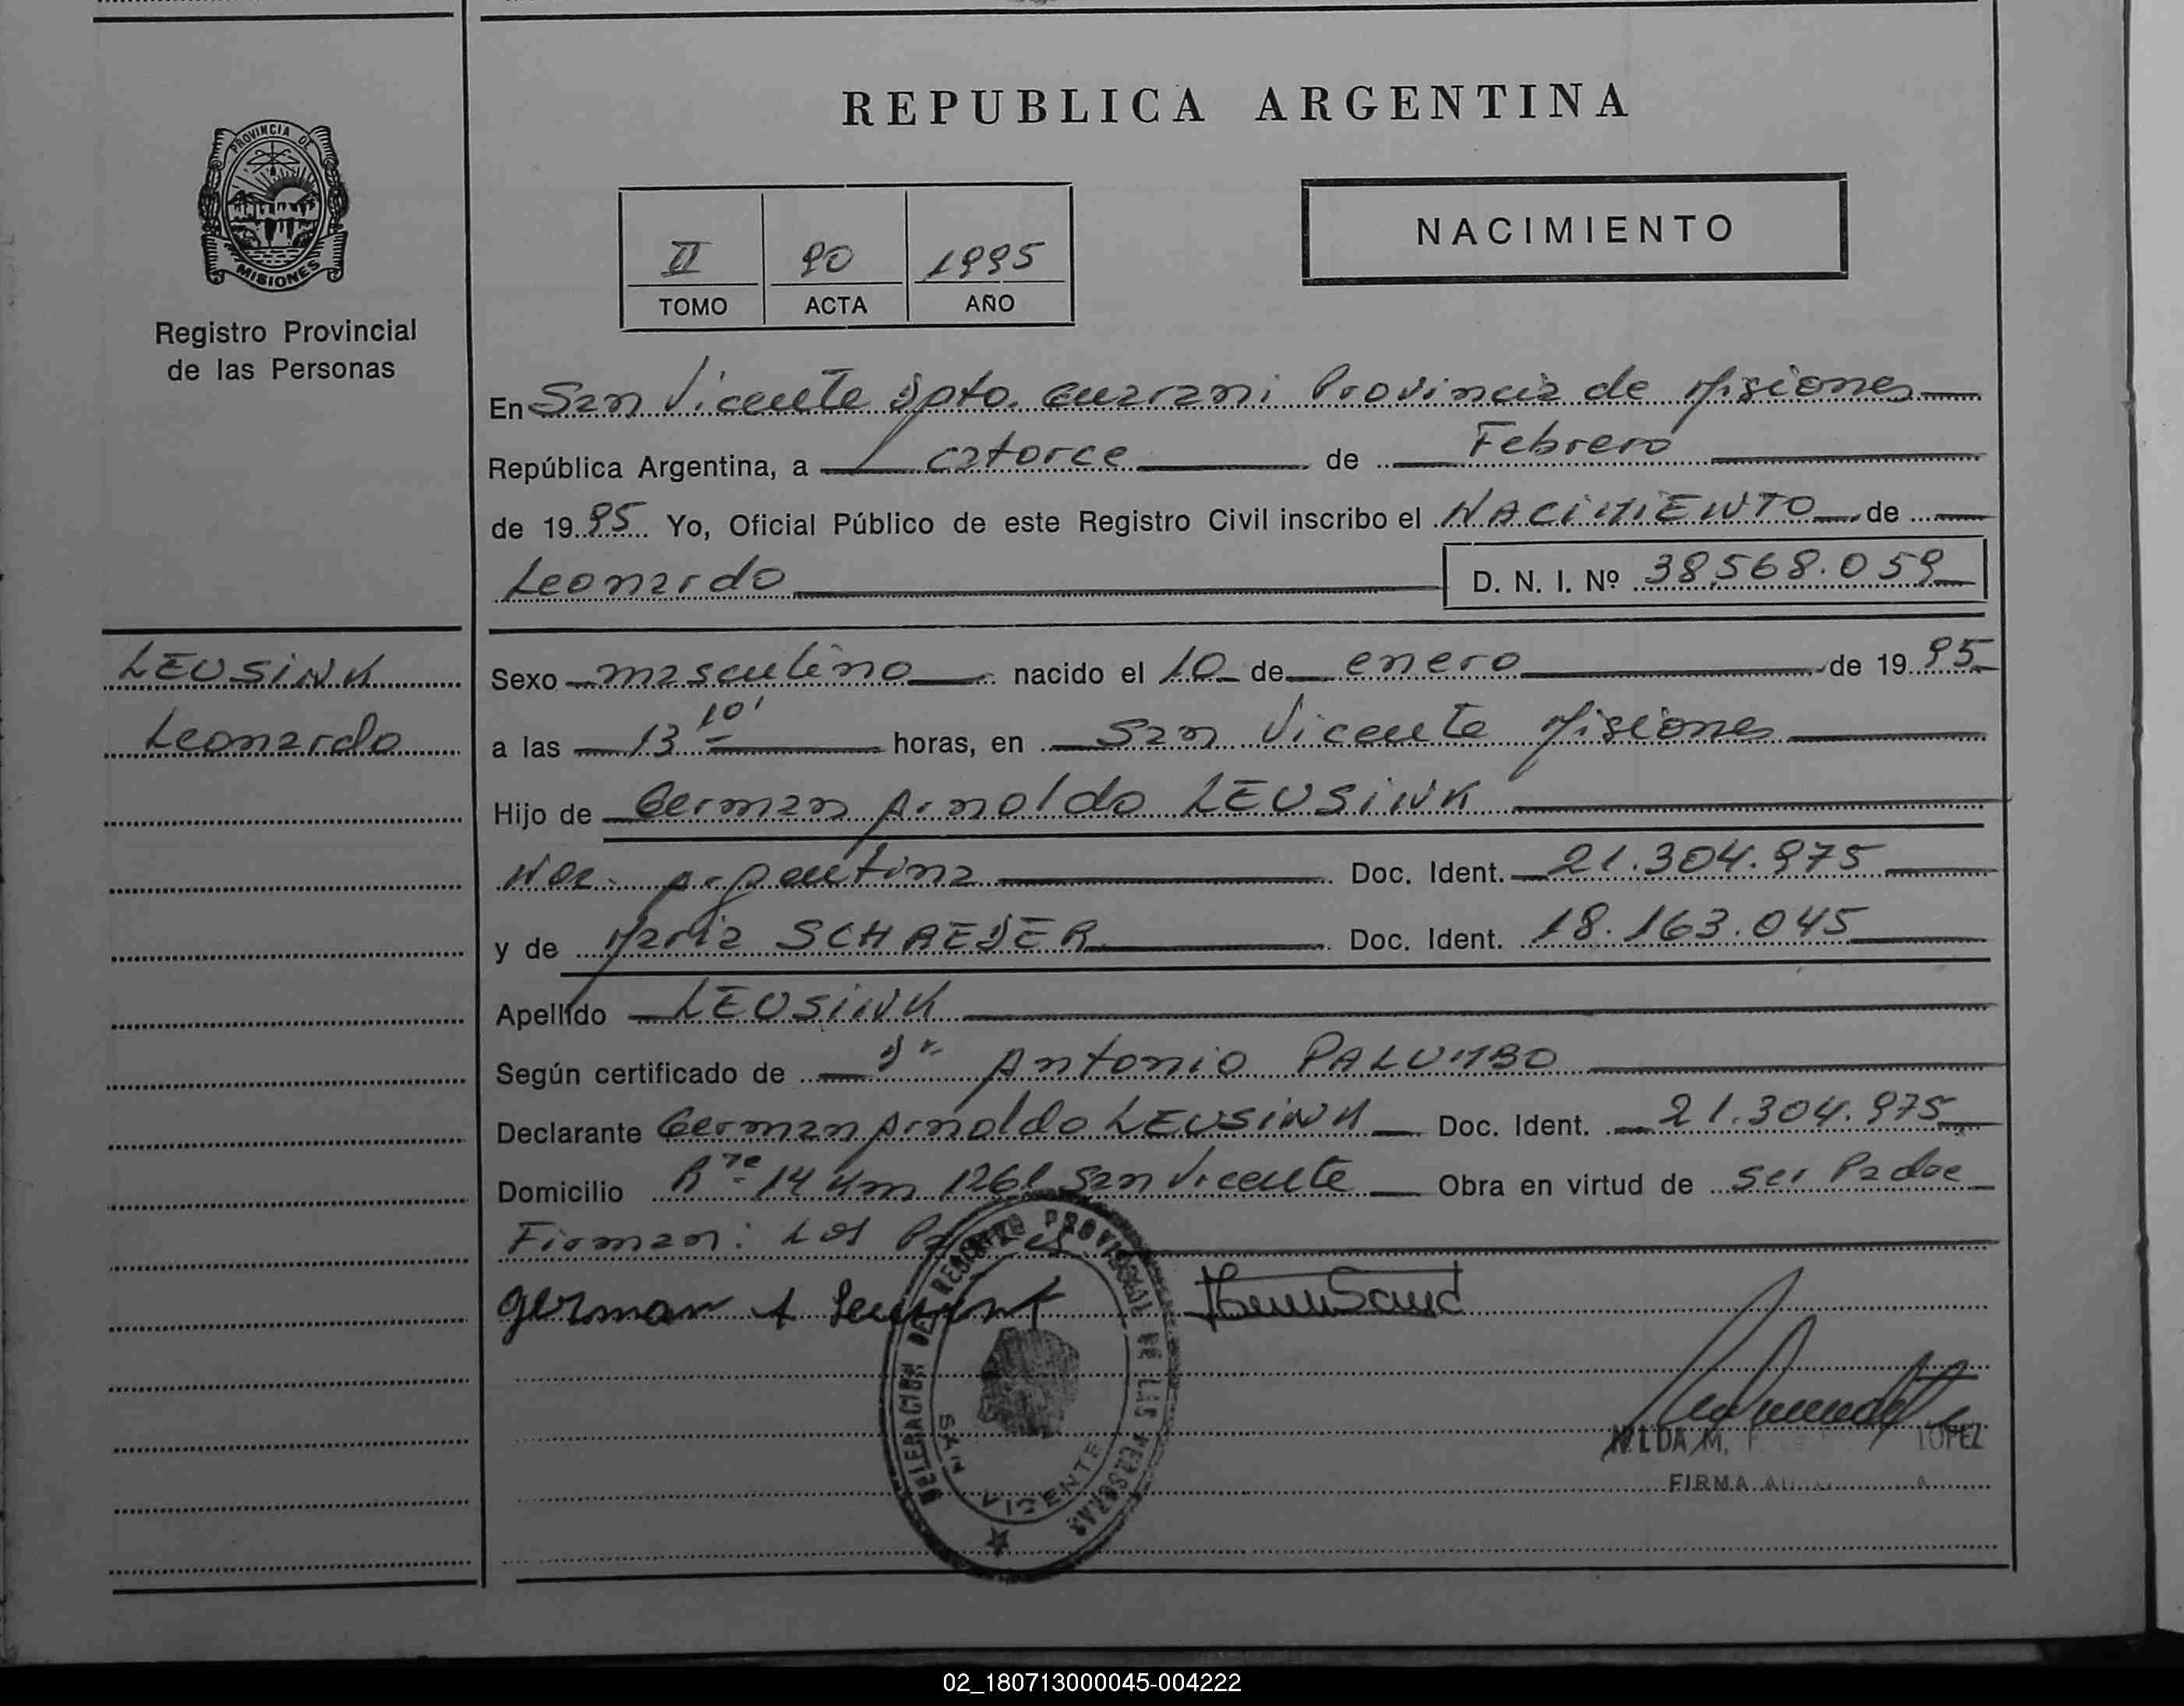 REPUBLICA ARGENTINA
PROVINCIA DE
MISIONES
Registro Provincial
de las Personas
II 90 1995
TOMO ACTA AÑO
NACIMIENTO
En San Vicente Dpto. Guarani Provincia de Misiones
República Argentina, a catorce de Febrero
de 1995 Yo, Oficial Público de este Registro Civil inscribo el NACIMIENTO de
Leonardo D. N. I. Nº 38.568.059
LEUSINK
Leonardo
Sexo masculino nacido el 10 de enero de 1995
a las 13 10' horas, en San Vicente Misiones
Hijo de German Arnoldo LEUSINK
Nac. Argentina Doc. Ident. 21.304.975
y de Maria SCHAEDER Doc. Ident. 18.163.045
Apellido LEUSINK
Según certificado de Dr. Antonio PALUMBO
Declarante German Arnoldo LEUSINK Doc. Ident. 21.304.975
Domicilio Rta 14 Km 1261 San Vicente Obra en virtud de ser Padre
Firman: Los Padres
German A
DELEGACION DEL REGISTRO PROVINCIAL DE LAS PERSONAS
SAN VICENTE
NILDA M. LOPEZ
FIRMA
02_180713000045-004222